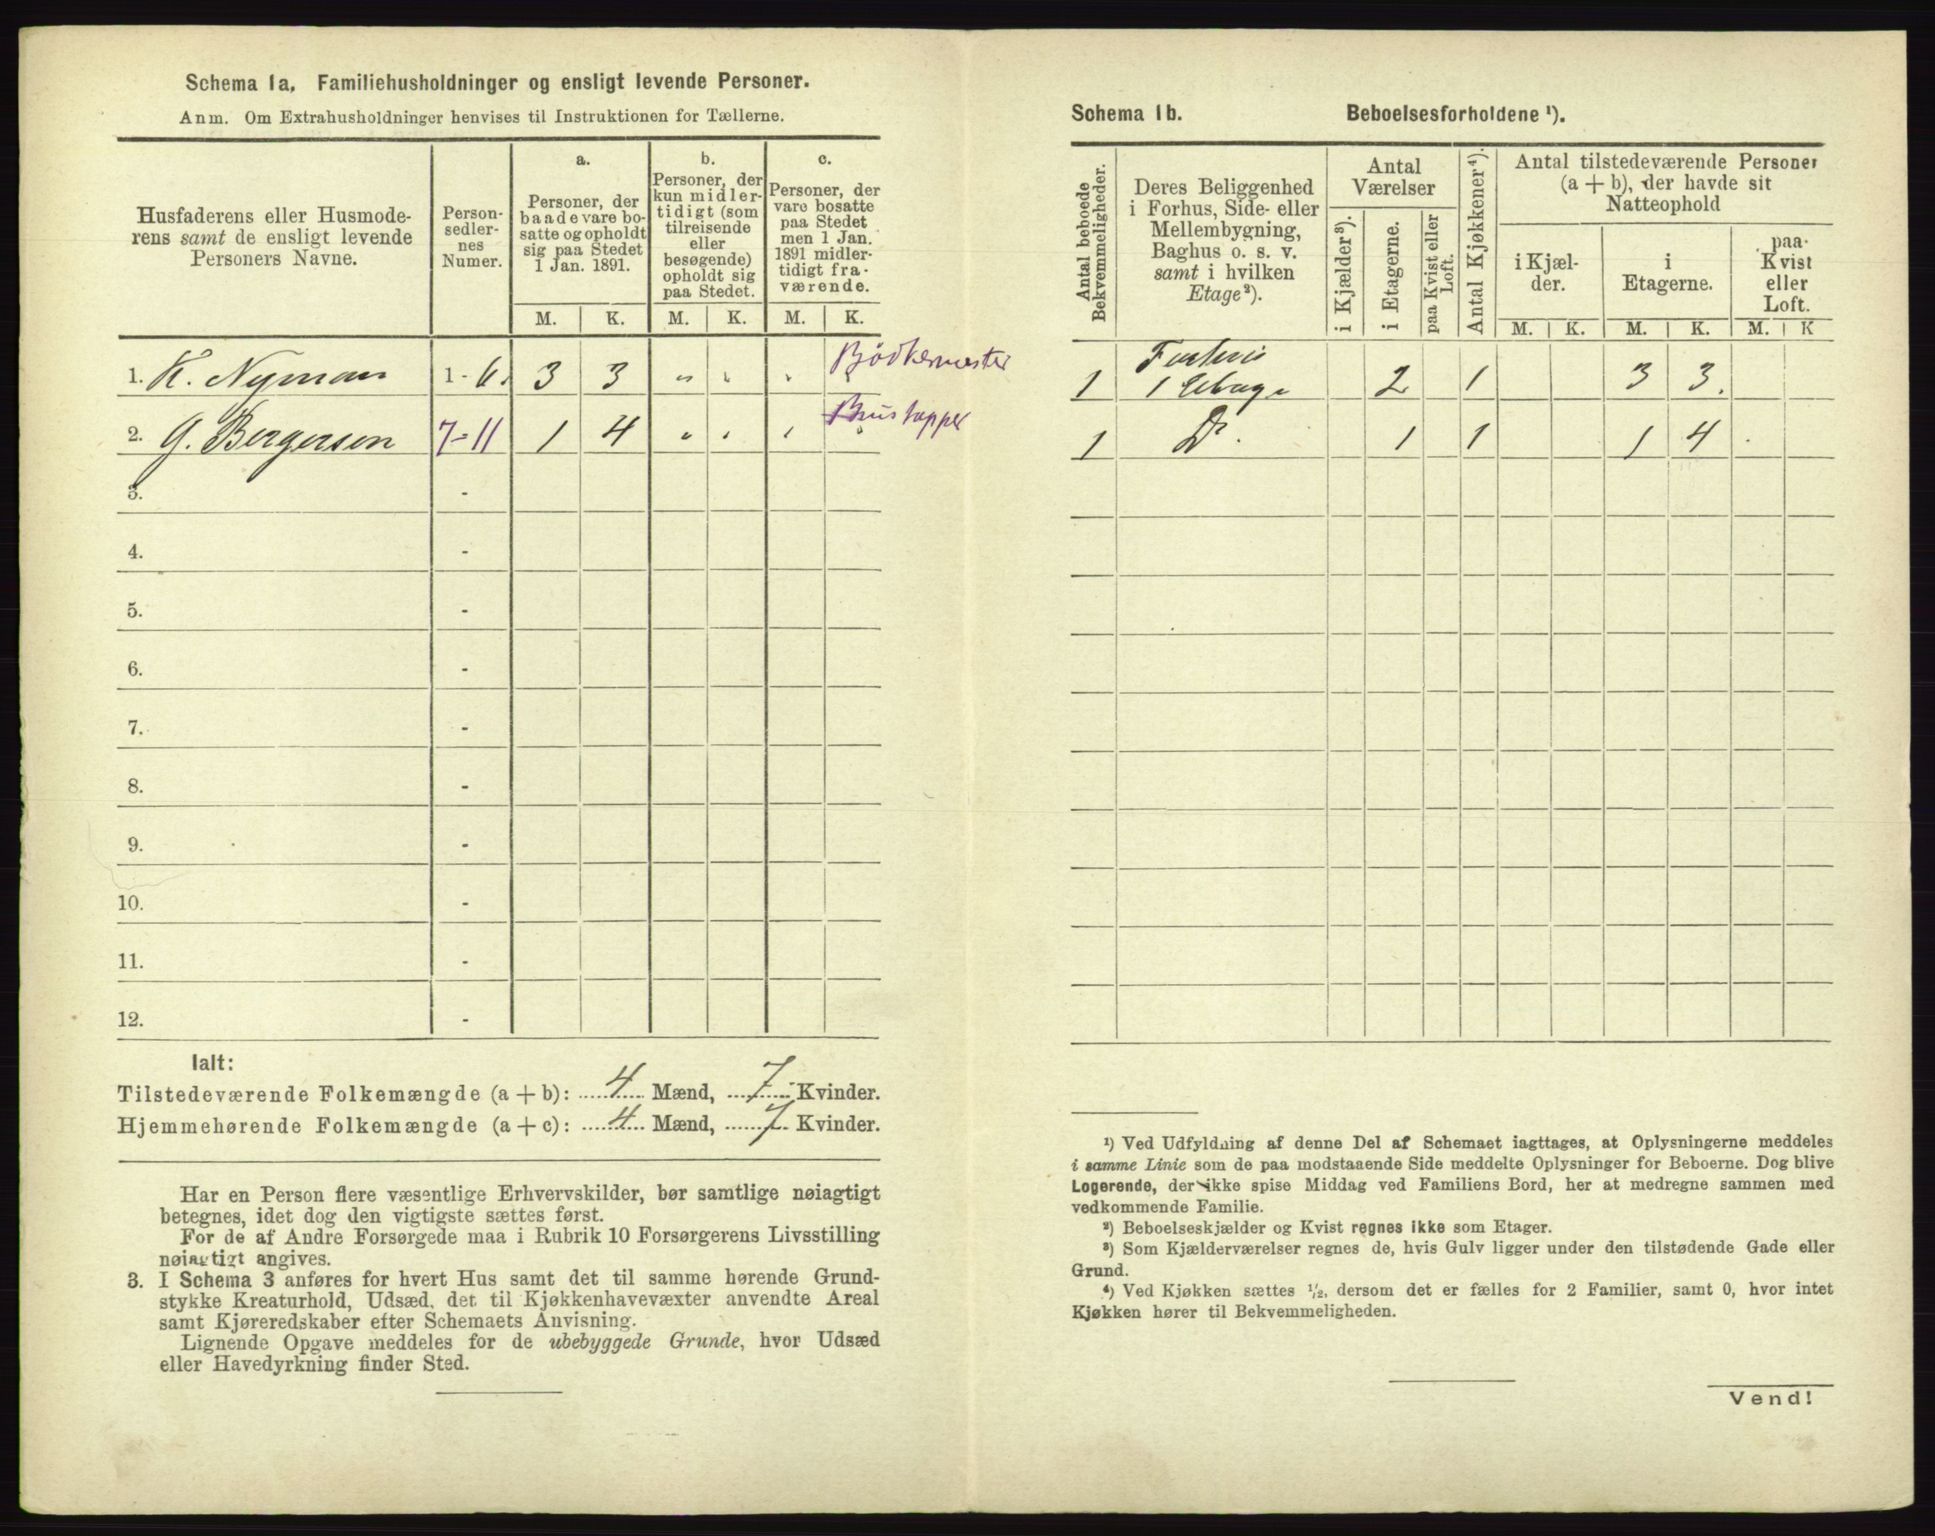 Schema 1a. Familiehusholdninger og ensligt levende Personer.
Anm. Om Extrahusholdninger henvises til Instruktionen for Tællerne.
Husfaderens eller Husmode-
rens samt de ensligt levende
Personers Navne.
Person-
sedler-
nes
Numer.
a.
Personer, der
baade vare bo-
satte og opholdt
sig paa Stedet
1 Jan. 1891.
b.
Personer, der
kun midler-
tidigt (som
tilreisende
eller
besøgende)
opholdt sig
paa Stedet.
c.
Personer, der
vare bosatte
paa Stedet
men 1 Jan.
1891 midler-
tidigt fra-
værende.
M. K. M. K. M. K.
1. K. Nyman 1 - 6. 3 3 Bødkermester
2. G. Bergersen 7-11 1 4 Brustapper
3. -
4. -
5. -
6. -
7. -
8. -
9. -
10. -
11. -
12. -
Ialt:
Tilstedeværende Folkemængde (a + b): 4 Mænd, 7 Kvinder.
Hjemmehørende Folkemængde (a + c): 4 Mænd, 7 Kvinder.
Har en Person flere væsentlige Erhvervskilder, bør samtlige nøiagtigt
betegnes, idet dog den vigtigste sættes først.
For de af Andre Forsørgede maa i Rubrik 10 Forsørgerens Livsstilling
nøiagtigt angives.
3. I Schema 3 anføres for hvert Hus samt det til samme hørende Grund-
stykke Kreaturhold, Udsæd, det til Kjøkkenhavevæxter anvendte Areal
samt Kjøreredskaber efter Schemaets Anvisning.
Lignende Opgave meddeles for de ubebyggede Grunde, hvor Udsæd
eller Havedyrkning finder Sted.
Schema 1b. Beboelsesforholdene ¹).
Antal beboede
Bekvemmeligheder.
Deres Beliggenhed
i Forhus, Side- eller
Mellembygning,
Baghus o. s. v.
samt i hvilken
Etage²).
Antal
Værelser
i Kjælder³).
i Etagerne.
paa Kvist eller
Loft.
Antal Kjøkkener⁴).
Antal tilstedeværende Personer
(a + b), der havde sit
Natteophold
i Kjæl-
der.
i
Etagerne.
paa
Kvist
eller
Loft.
M. K. M. K. M. K
1 1 Etage 2 1 3 3.
1 Do. 1 1 1 4
¹) Ved Udfyldning af denne Del af Schemaet iagttages, at Oplysningerne meddeles
i samme Linie som de paa modstaaende Side meddelte Oplysninger for Beboerne. Dog blive
Logerende, der ikke spise Middag ved Familiens Bord, her at medregne sammen med
vedkommende Familie.
²) Beboelseskjælder og Kvist regnes ikke som Etager.
³) Som Kjælderværelser regnes de, hvis Gulv ligger under den tilstødende Gade eller
Grund.
⁴) Ved Kjøkken sættes ½, dersom det er fælles for 2 Familier, samt 0, hvor intet
Kjøkken hører til Bekvemmeligheden.
Vend!